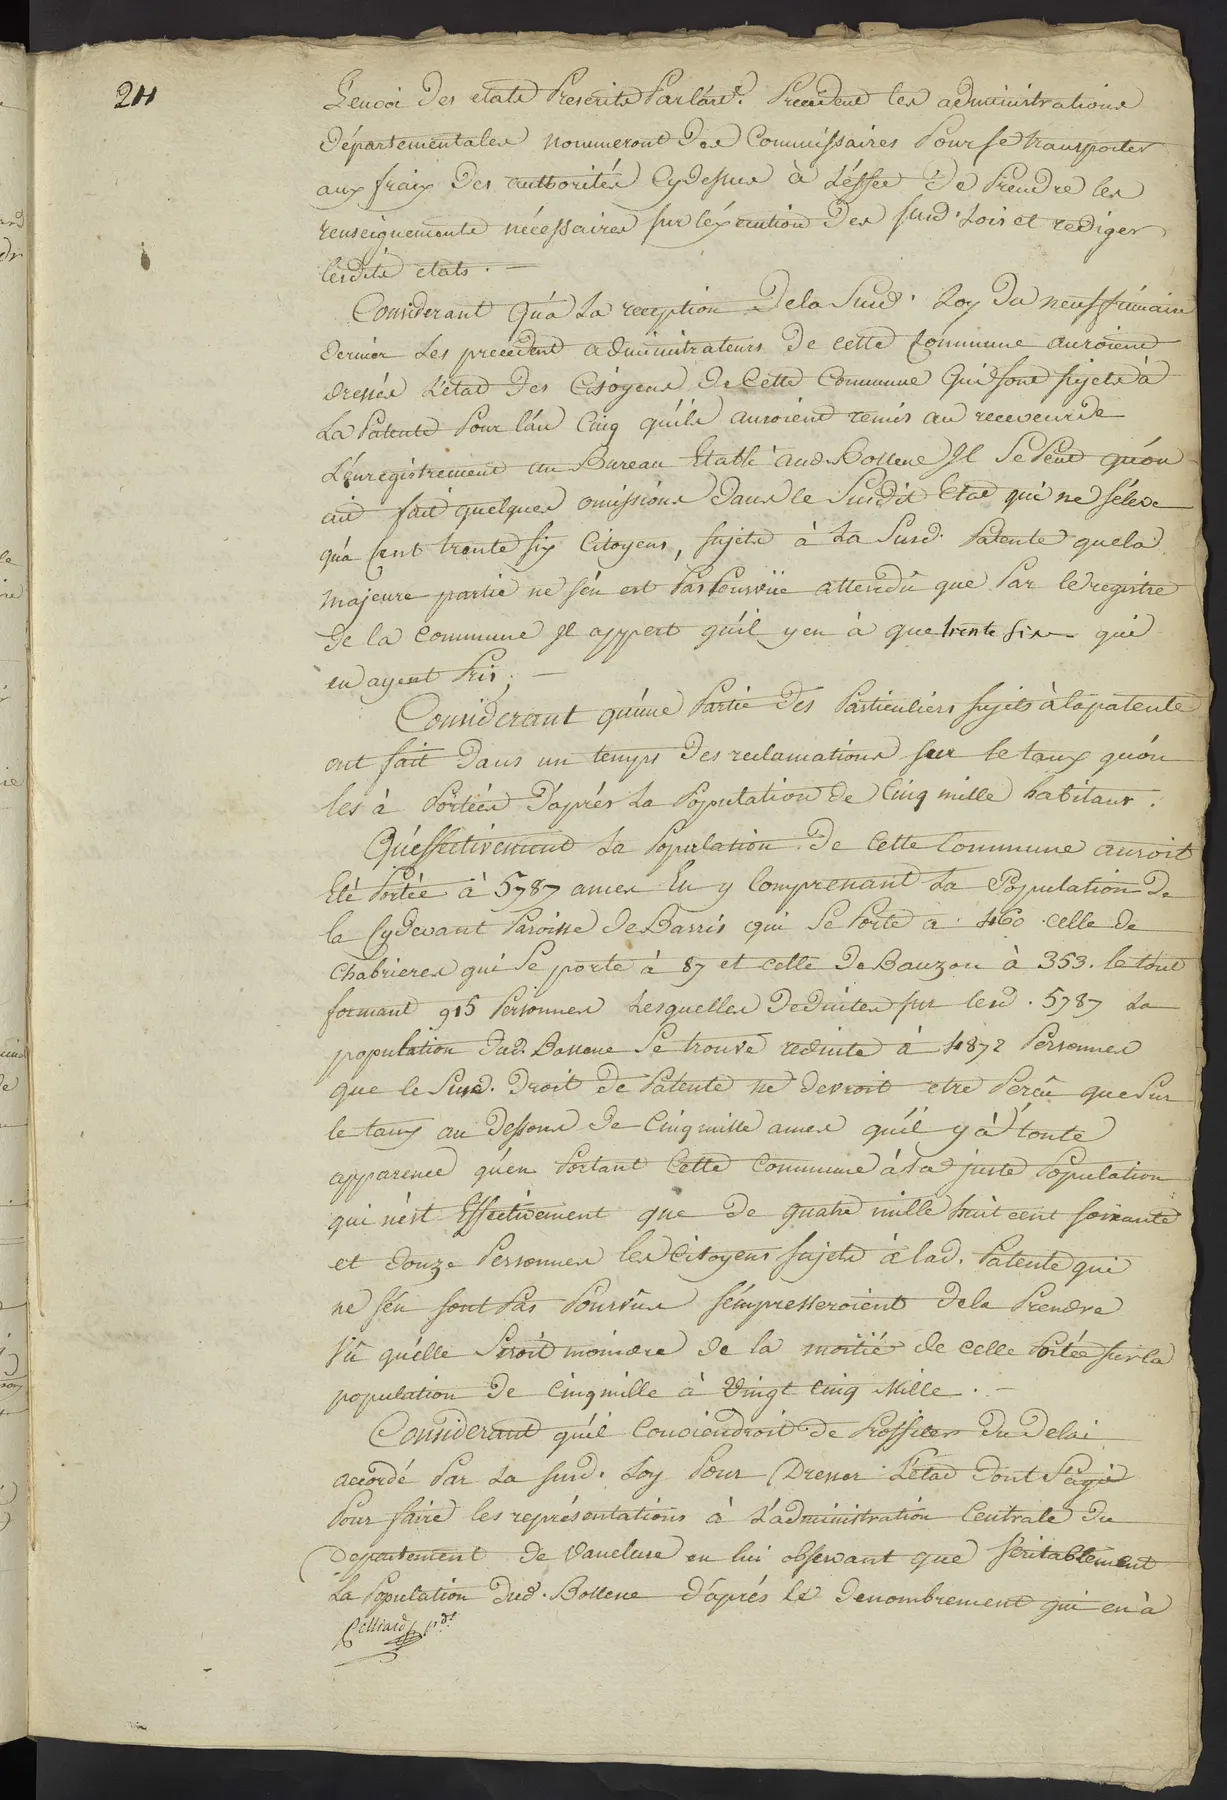 24
L'envoi des etats Prescrits Par l'art. Precedent les administrations
départementales nommeront des Commissaires Pour se transporter
aux fraix des authorités Cydessus à L'éffet de Prendre les
renseignements nécessaires sur l'éxecution des susd. Lois et rediger
lesdits etats. —
Considerant Qu'à La reception de la Susd. Loy du neuf frimaire
dernier Les precedent administrateurs de cette Commune auroient
dressés L'état des Citoyens de Cette Commune Qui sont sujets à
La Patente Pour L'an Cinq qu'ils auroient remis au receveur de
L'énregistrement au Bureau Etabli aud. Bollene Il se Peut qu'on
ait fait quelques omissions dans le Susdit Etat qui ne s'éléve
qu'a Cent trente six Citoyens, sujets à La Susd. Patente que la
majeure partie ne s'én est Pas Pourvüe attendû que Par le registre
de la Commune Il appert qu'il y en à que trente six qui
en ayent Pris, —
Considerant qu'une Partie des Particuliers sujets à la patente
ont fait dans un temps des reclamations sur le taux qu'on
les à Portées D'aprés La Population de Cinq mille habitans.
Qu'éffectivement La Population de Cette Commune auroit
Eté Portée à 5787 ames En y Comprenant La Population de
la Cydevant Paroisse de Barris qui se Porte a 460 celle de
Chabrieres qui se porte à 87 et celle de Bauzon à 353. le tout
formant 915 Personnes Lesquelles Deduites sur lesd. 5787 La
population dud. Bollene se trouve reduite à 4872 Personnes
que le Susd. Droit de Patente ne devroit etre Perçu que sur
le taux au dessous de Cinq mille ames qu'il y à toute
apparence qu'en Portant Cette Commune à sa juste Population
qui n'ést Effectivement que de quatre mille huit cent soixante
et douze Personnes les Citoyens sujets à lad. Patente qui
ne s'én sont Pas Pourvûs s'émpresseroient de la Prendre
Vû qu'elle Seroit moindre de la moitié de celle Portée sur la
population de Cinq mille à Vingt Cinq Mille. —
Considerant qu'il Conviendroit de Proffiter du Delai
accordé Par La susd. Loy Pour Dresser L'état dont S'agit
Pour faire les représentations à L'administration Centrale du
Departement de Vaucluse en lui observant que véritablement
La Population dud. Bollene D'aprés le Denombrement qui en à